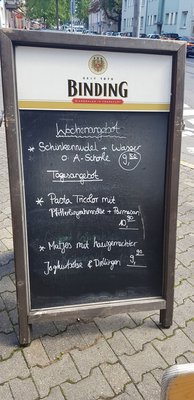 SEIT 1870
BINDING
Wochenangebot
* Schinkennudel + Wasser
o A-Schorle 9,50
Tagesangebot
* Pasta Tricolor mit
Pfifferlingrahmsoße + Parmesan
10,90
* Matjes mit hausgemachter
Joghurtsoße & Drillingen 9,90
BINDING